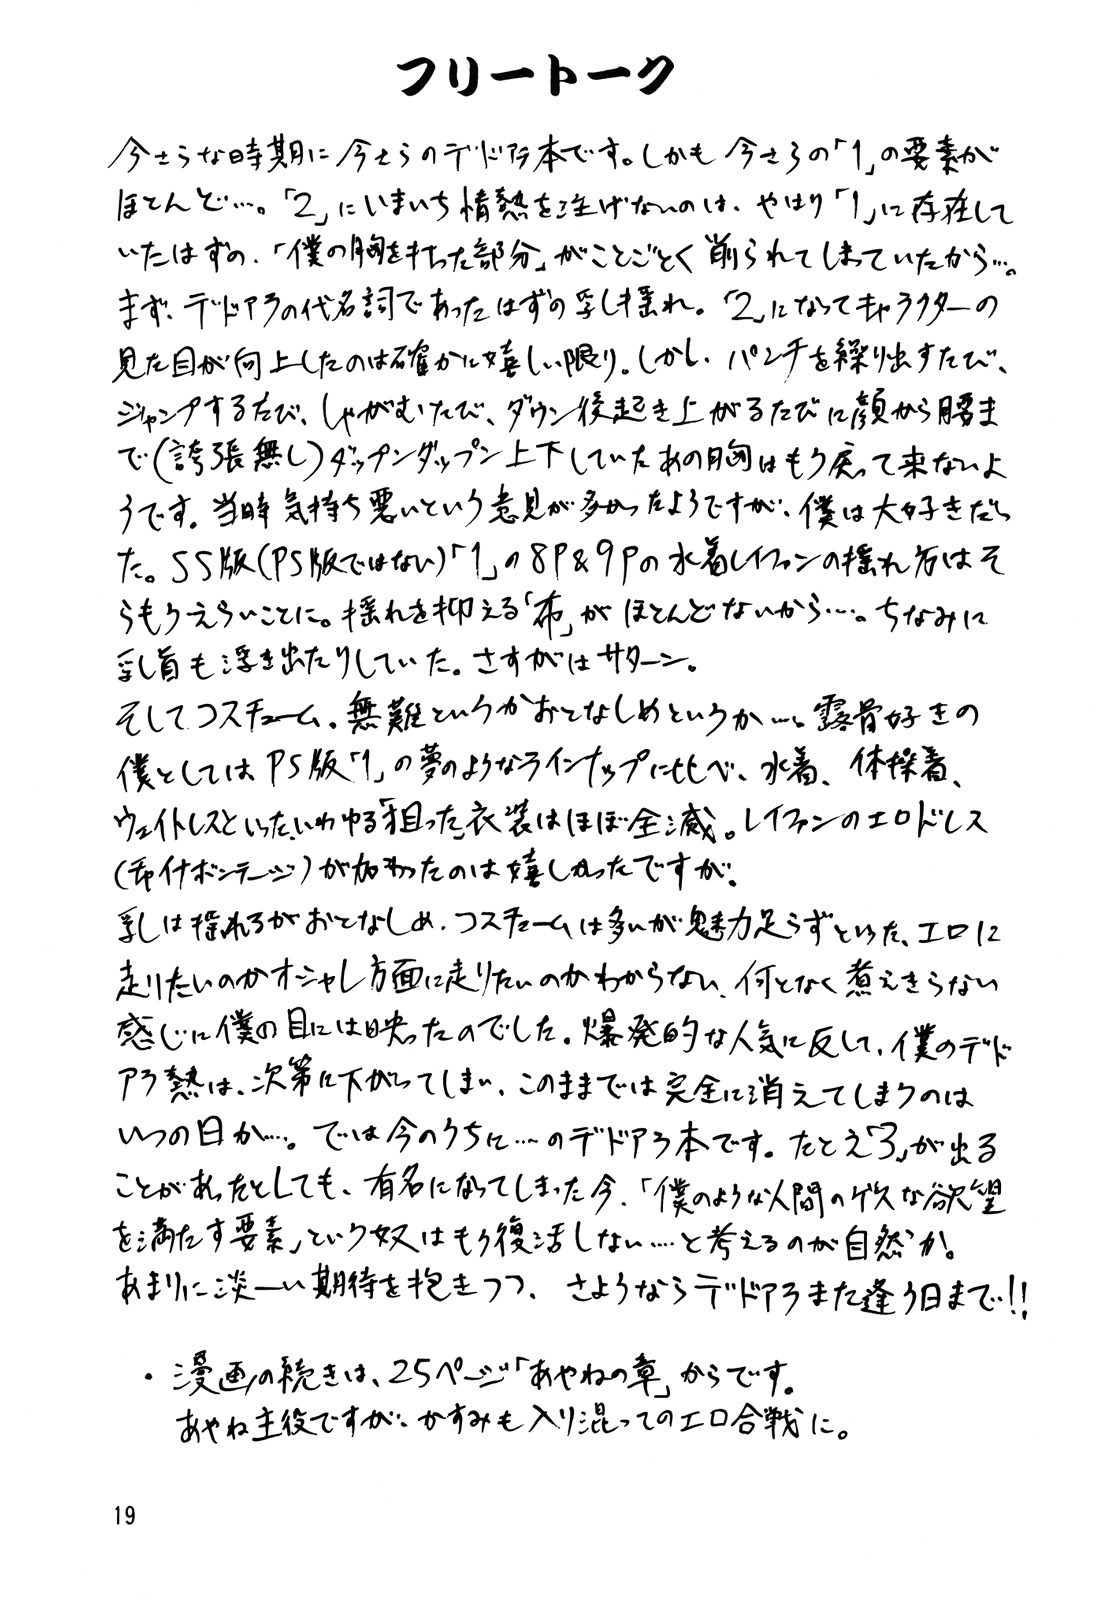 フリートーク
今さらな時期に今さらのデドアラ本です。しかも今さらの「1」の要素が
ほとんど…。「2」にいまいち情熱を注げないのは、やはり「1」に存在して
いたはずの、「僕の胸を打った部分」がことごとく削られてしまっていたから…。
まず、デドアラの代名詞であったはずの乳揺れ。「2」になってキャラクターの
見た目が向上したのは確かに嬉しい限り。しかし、パンチを繰り出すたび、
ジャンプするたび、しゃがむたび、ダウン後起き上がるたびに顔から腰ま
で(誇張無し)ダップンダップン上下していたあの胸はもう戻って来ないよ
うです。当時気持ち悪いという意見が多かったようですが、僕は大好きだっ
た。SS版(PS版ではない)「1」の8P&9Pの水着レイファンの揺れ方はそ
りゃもうえらいことに。揺れを抑える「布」がほとんどないから…。ちなみに
乳首も浮き出たりしていた。さすがはサターン。
そしてコスチューム。無難というかおとなしめというか…。露骨好きの
僕としてはPS版「1」の夢のようなラインナップに比べ、水着、体操着、
ウェイトレスといった、いわゆる「狙った」衣装はほぼ全滅。レイファンのエロドレス
(チャイナボンテージ)が加わったのは嬉しかったですが。
乳は揺れるがおとなしめ、コスチュームは多いが魅力足らずといった、エロに
走りたいのかオシャレ方面に走りたいのかわからない、何となく煮えきらない
感じに僕の目には映ったのでした。爆発的な人気に反して、僕のデド
アラ熱は、次第に下がってしまい、このままでは完全に消えてしまうのは
いつの日か…。では今のうちに…のデドアラ本です。たとえ「3」が出る
ことがあったとしても、有名になってしまった今、「僕のような人間のゲスな欲望
を満たす要素」という奴はもう復活しない…と考えるのが自然か。
あまりに淡ーい期待を抱きつつ、さようならデドアラまた逢う日まで!!
・漫画の続きは、25ページ「あやねの章」からです。
あやね主役ですが、かすみも入り混ってのエロ合戦に。
19